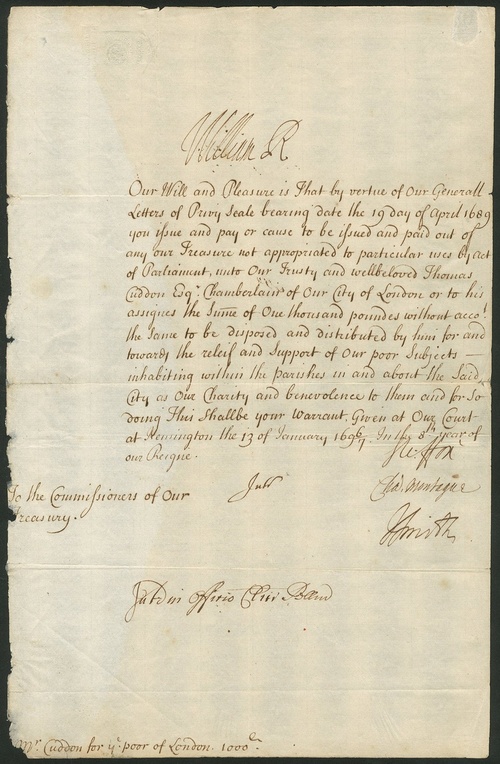 William R
Our Will and Pleasure is That by vertue of Our Generall
Letters of Privy Seale bearing date the 19 day of April 1689
you issue and pay or cause to be issued and paid out of
any our Treasure not appropriated to particular uses by Act
of Parliament, unto Our Trusty and wellbeloved Thomas
Cuddon Esqr. Chamberlain of Our City of London or to his
assignes the Sume of One thousand poundes without accot.
the same to be disposed and distributed by him for and
towards the releif and Support of Our poor Subjects —
inhabiting within the parishes in and about the Said
City as Our Charity and benevolence to them and for So
doing This Shallbe your Warrant. Given at Our Court
at Kensington the 13 of January 1696/7 In the 8th year of
our Reigne.
Ste: Fox
To the Commissioners of Our
Treasury.
Cha: Montague
JSmith
in officio
Mr. Cuddon for ye. poor of London. 1000